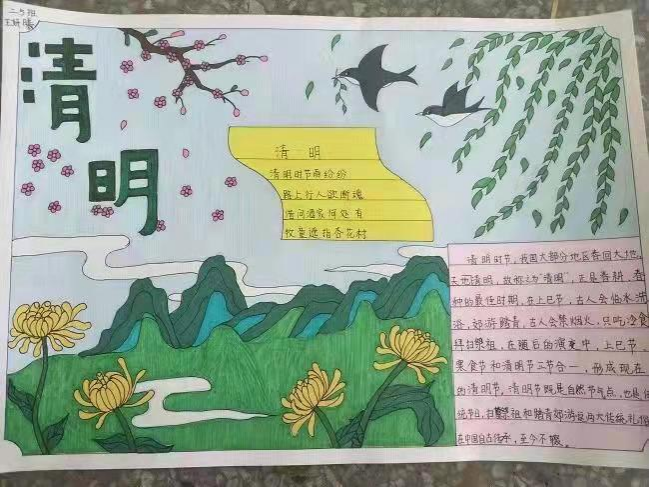 二5班
清明
清 明
清明时节雨纷纷
路上行人欲断魂
借问酒家何处有
牧童遥指杏花村
清明时节,我国大部分地区春回大地,
天更清明,故称之为"清明",正是春耕、春
种的最佳时期,在上巳节,古人会临水沐
浴,郊游踏青,古人会禁烟火,只吃冷食
拜祭祖,在随后的演变中,上巳节
寒食节和清明节三节合一,形成现在
的清明节,清明节既是自然节气点,也是
统节日,扫祭祖和踏青郊游是两大传统礼俗
在中国自古传承,至今不辍。